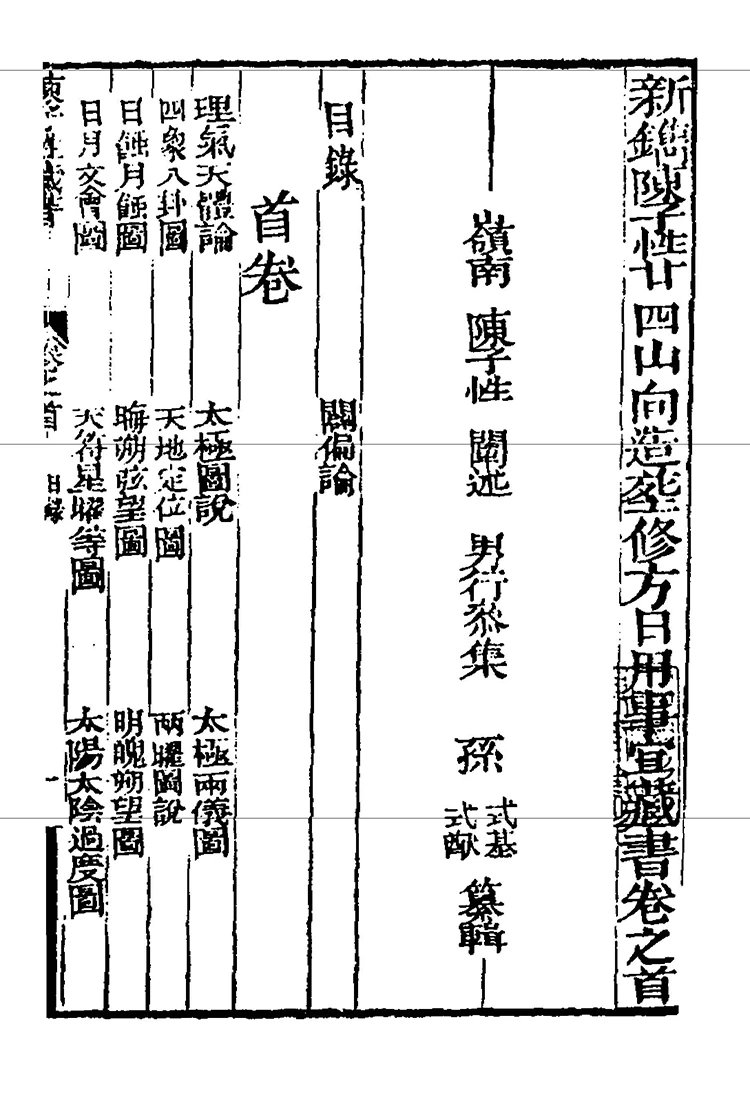 新鐫陳子性廿四山向造葬修方日用事宜藏書卷之首
嶺南 陳子性 闡述 男行叅集 孫 式基 式猷 纂輯
目錄 闢偏論
首卷
理氣天體論 太極圖說 太極兩儀圖
四象八卦圖 天地定位圖 两曜圖說
日蝕月蝕圖 晦朔弦望圖 明魄朔望圖
日月交會圖 天符星曜等圖 太陽太陰過度圖
藏書 卷之首 目錄 一